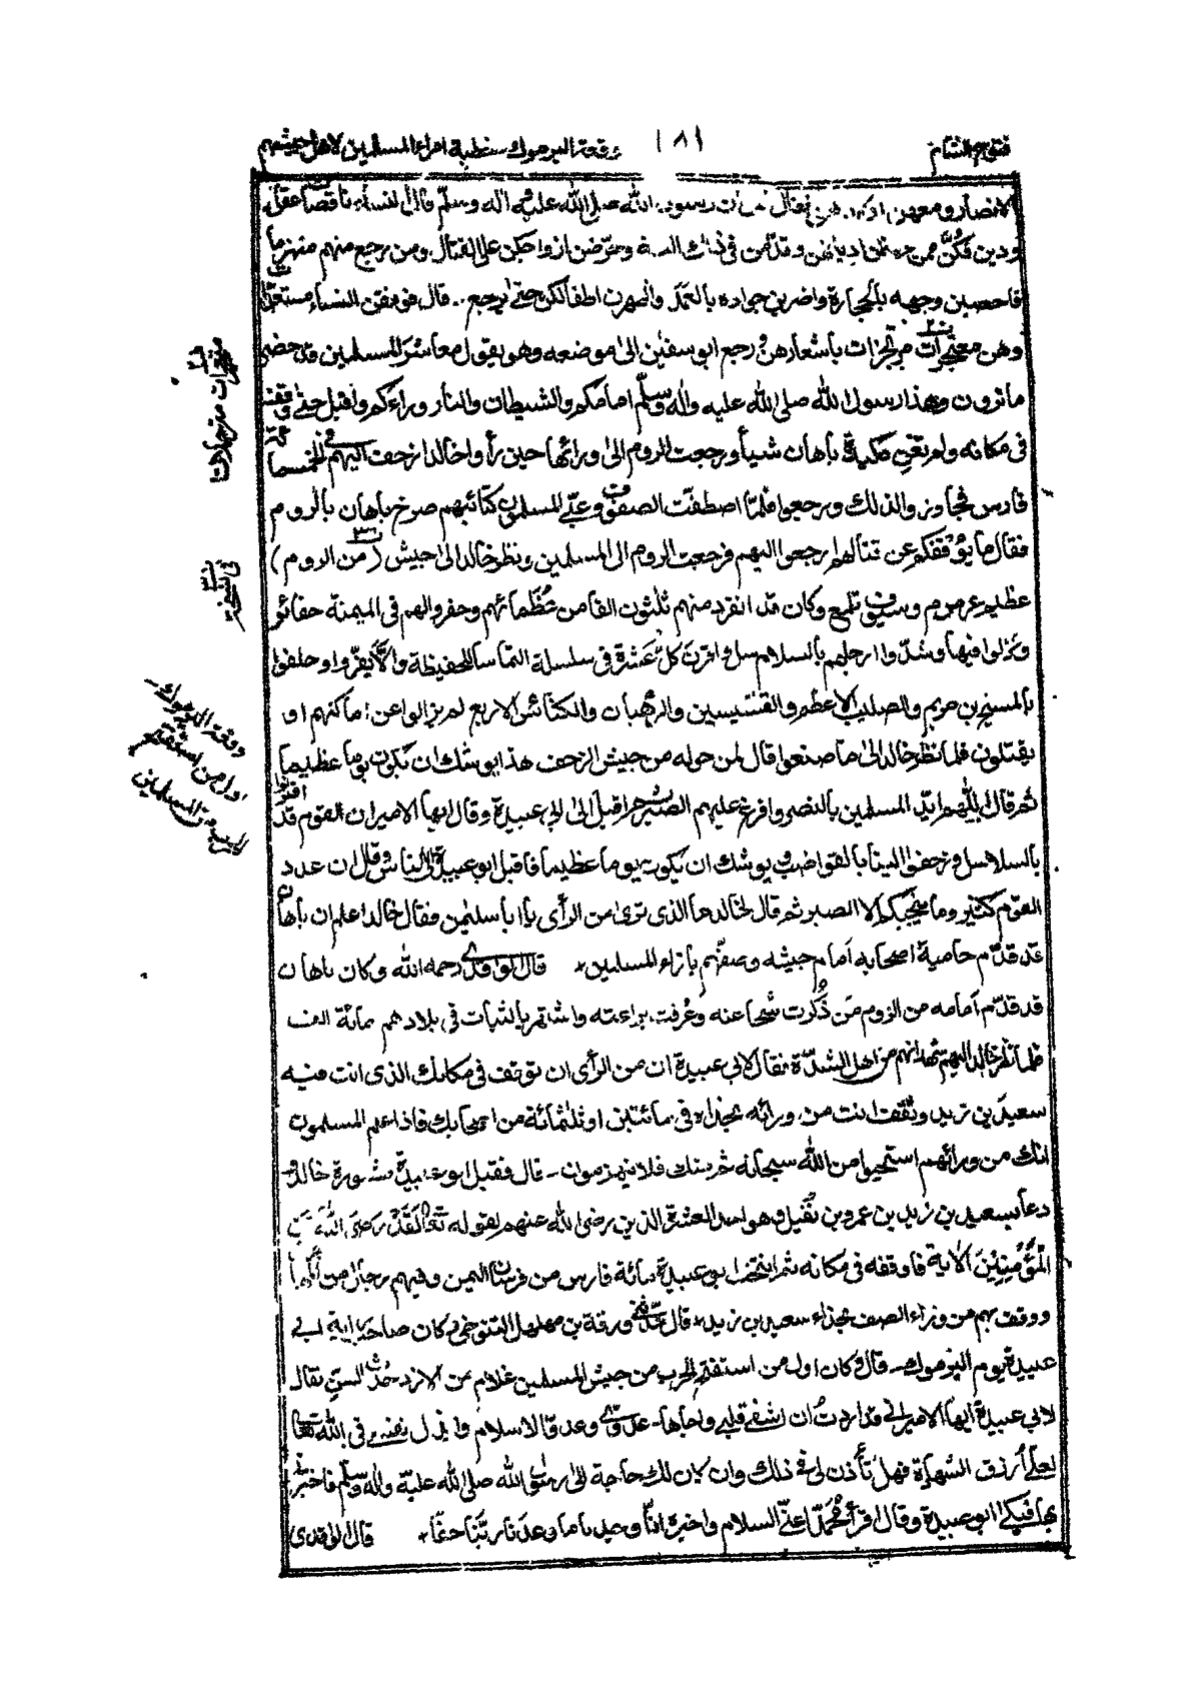 فتوح الشام ١٨١ وقعة اليرموك خطبة امراء المسلمين لاهل جيشهم
الانصار ومعهن اولادهن فقال لهن ان رسول الله صلى الله عليه واله وسلم قال ان النساء ناقصات عقل
ودين فكنّ ممن في ذلك اليوم وحرّضن ازواجكن على القتال ومن رجع منهم منهزما
فاحصبن وجهه بالحجارة واضربن جواده بالعمد حتى يرجع قال فوقفن النساء مستعدات
وهن معتجرات مرتجزات باشعارهن ورجع ابو سفيان الى موضعه وهو يقول معاشر المسلمين قد حضر
ما ترون وهذا رسول الله صلى الله عليه واله وسلم امامكم والشيطان والنار وراءكم واقبل حتى وقف
في مكانه ولم تغن مكيدة باهان شيأ ورجعت الروم الى ورائها حين رأوا خالدا زحف اليهم في خمسمائة
فارس فجاوزوا لذلك ورجعوا فلما اصطفّت الصفوف وعبّى المسلمون كتائبهم صرخ باهان بالروم
فقال ما يوقفكم عن قتالهم ارجعوا اليهم فرجعت الروم الى المسلمين ونظر خالد الى جيش (من الروم)
عظيم عرمرم وسيوف تلمع وكان قد انفرد منهم ثلثون الفا من عظمائهم وحفروا لهم في الميمنة حفائر
ونزلوا فيها وشدّوا ارجلهم بالسلاسل واقترن كل عشرة في سلسلة التماسا للحفيظة والّا يفرّوا وحلفوا
بالمسيح بن مريم والصليب الاعظم والقسيسين والرهبان والكنائس الاربع لم يزالوا عن اماكنهم او
يقتلون فلما نظر خالد الى ما صنعوا قال لمن حوله من جيش الزحف هذا يوشك ان يكون يوما عظيما
ثم قال اللّهم ايّد المسلمين بالنصر وافرغ عليهم الصبر ثم اقبل الى ابي عبيدة وقال ايها الامير ان القوم قد اقترنوا
بالسلاسل وزحفوا الينا بالقواضب ويوشك ان يكون يوما عظيما فاقبل ابو عبيدة الى الناس وقال ان عدد
القوم كثير وما ينجيكم الا الصبر ثم قال لخالد ما الذي ترى من الرأى يا ابا سليمن فقال خالد اعلم ان باهان
قد قدّم حامية اصحابه امام جيشه وصفّهم بازاء المسلمين * قال الواقدي رحمه الله وكان باهان
قد قدّم امامه من الروم من ذكرت شجاعته وعرفت براعته واشتهر بالثبات في بلادهم مائة الف
فلما نظر خالد اليهم شهد انهم من اهل الشدّة فقال لابي عبيدة ان من الرأى ان توقف في مكانك الذى انت فيه
سعيد بن زيد وتقف انت من ورائه بحذاه في مائتين او ثلثمائة من اصحابك فاذا علم المسلمون
انك من ورائهم استحيوا من الله سبحانه ثم منك فلا ينهزمون - قال فقبل ابو عبيدة مشورة خالد و
دعا بسعيد بن زيد بن عمرو بن نفيل وهو احد العشرة الذين رضى الله عنهم لقوله تعالى لَقَدْ رَضِيَ اللّٰهُ عَنِ
الْمُؤْمِنِيْنَ الآية فاوقفه في مكانه ثم انتخب ابو عبيدة مائة فارس من فرسان اليمن وفيهم رجال من
ووقف بهم من وراء الصف بحذاء سعيد بن زيد * قال حدثني ورقة بن مهلهل التنوخى وكان صاحب راية ابي
عبيدة يوم اليرموك - قال وكان اول من استفتح الحرب من جيش المسلمين غلام من الازد حدث السن فقال
لابي عبيدة ايها الامير انى قد اردت ان اشفى قلبى واجاهد عدوّى وعدو الاسلام وابذل نفسي في الله تعالى
لعلى ارزق الشهادة فهل تأذن لى في ذلك وان كان لك حاجة الى رسول الله صلى الله عليه واله وسلم فاخبرني
بها فبكى ابو عبيدة وقال اقرأ محمدا عنى السلام واخبره انّا وجدنا ما وعدنا ربّنا حقا * قال الواقدي
معتجرات مترجلات
في الشجر
وقعة اليرموك
اول من استفتح
الحرب من المسلمين